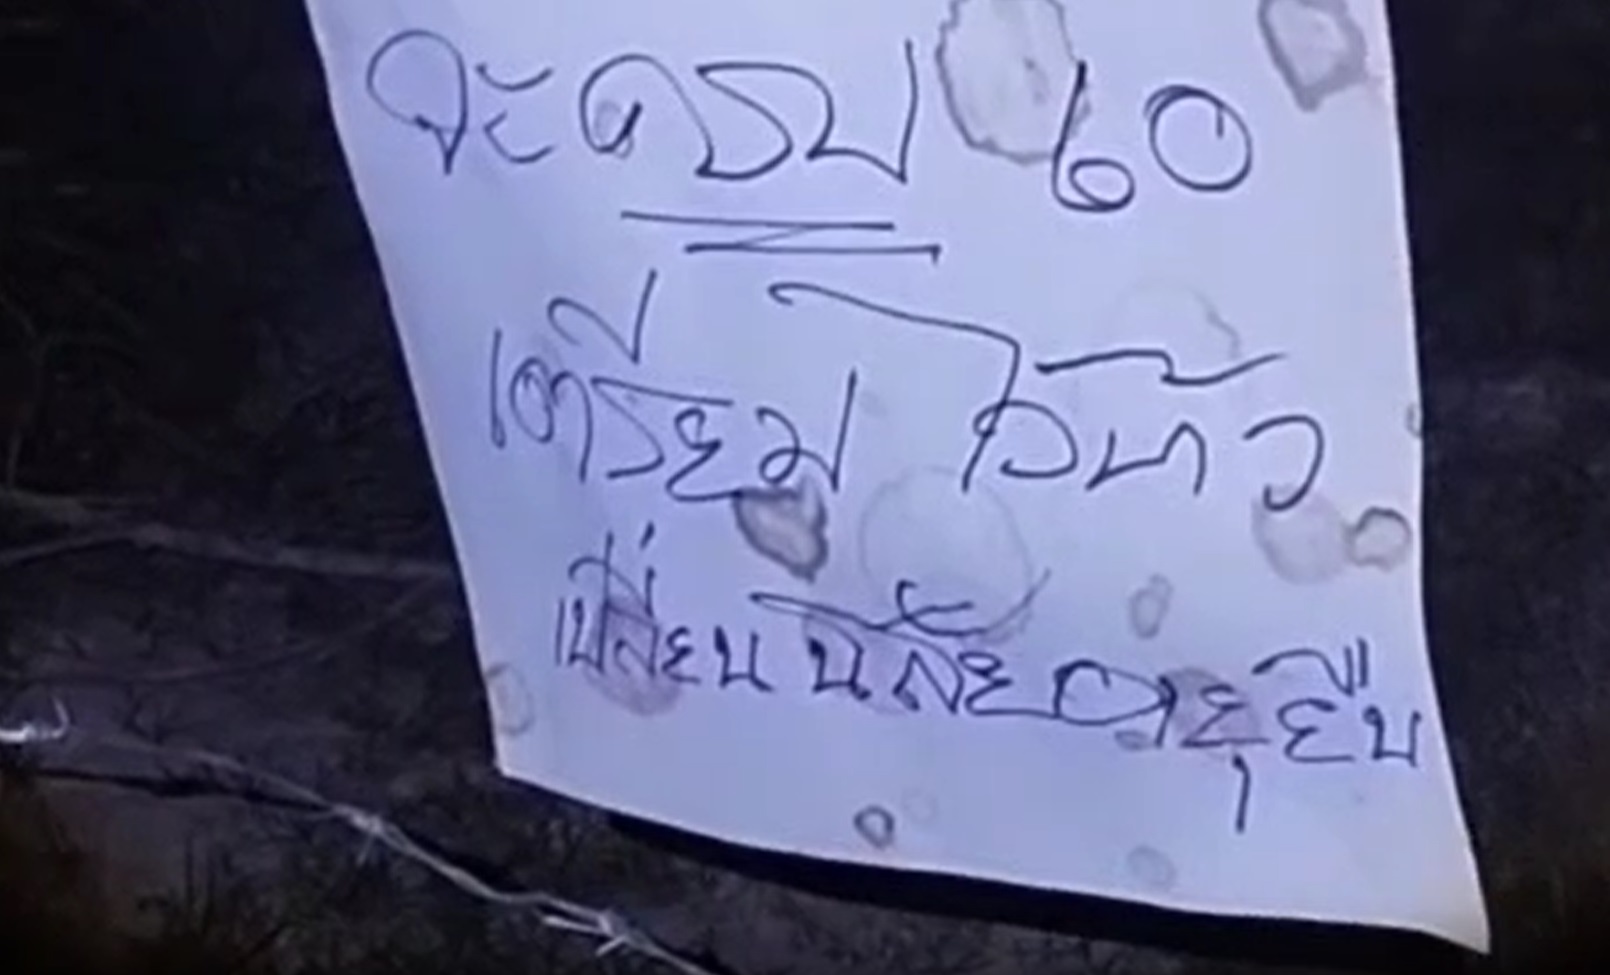 จะครบ 60
เตรียมไว้ทัว
เปลี่ยนนิสัยอายุยืน